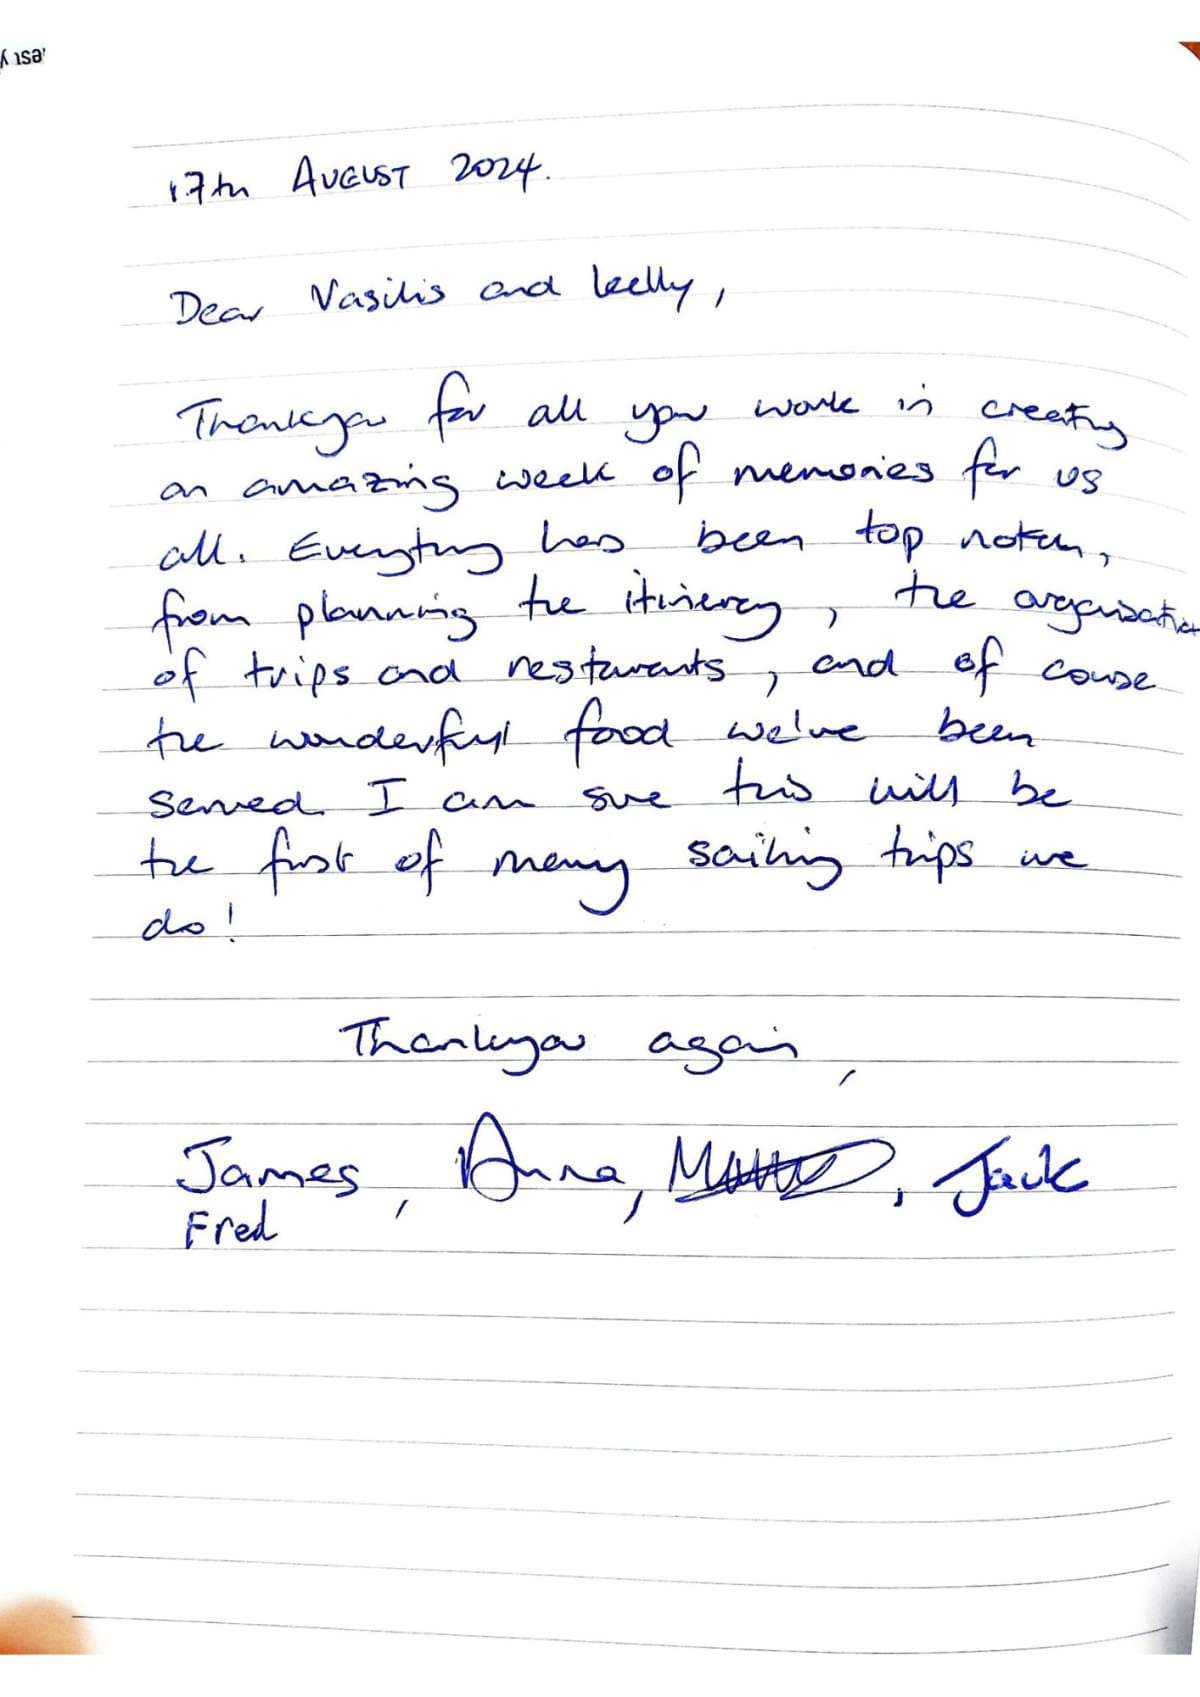 17th AUGUST 2024.
Dear Vasilis and Kelly,
Thankyou for all your work in creating
an amazing week of memories for us
all. Everything has been top notch,
from planning the itinerary, the organisation
of trips and restaurants, and of course
the wonderful food we've been
served. I am sure this will be
the first of many sailing trips we
do!
Thankyou again,
James, Anna, Jack
Fred